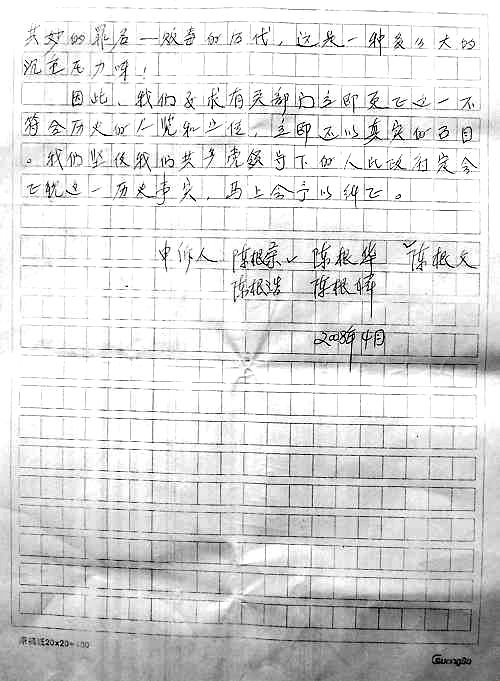 其妙的罪名一贩毒的后代，这是一种多么大的
沉重压力呀！
因此，我们要求有关部门立即更正这一不
符合历史的 和 位，立即还以真实的面目
。我们坚信我们共产党领导下的人民政府定会
正视这一历史事实，马上会予以纠正。
申诉人 陈根荣 陈根华 陈根文
陈根浩 陈根
2008年4月
原稿纸20×20=400
GuangBo